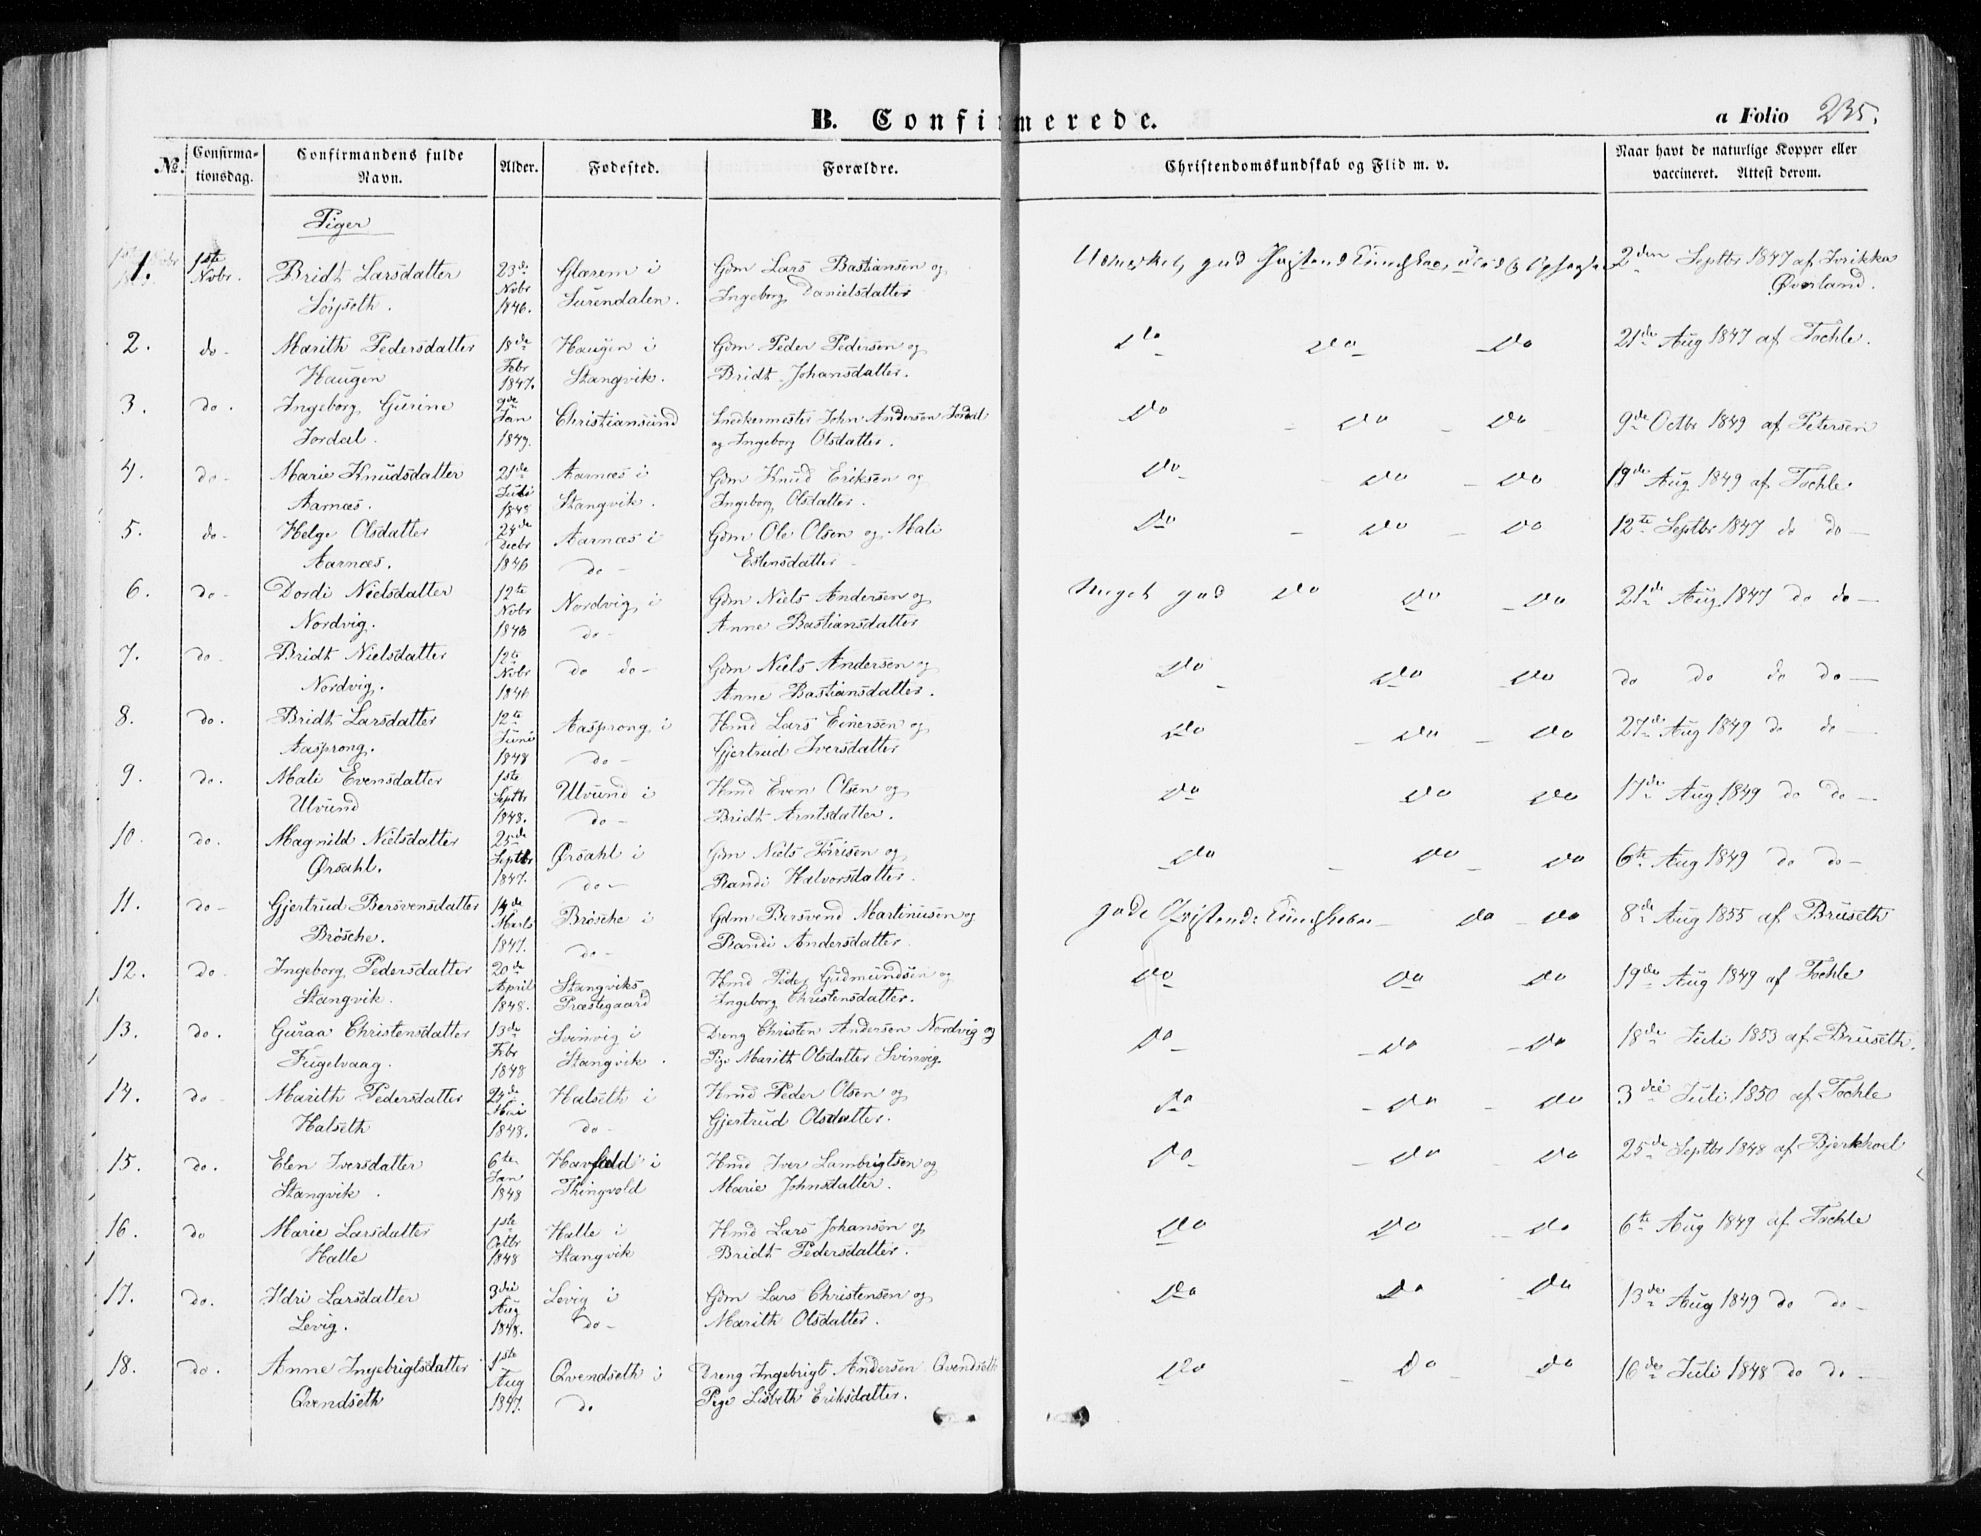 B. Confirmerede.
a Folio 235.
№. Confirmationsdag. Confirmandens fulde Navn. Alder. Fødested. Forældre. Christendomskundskab og Flid m. v. Naar havt de naturlige Kopper eller vaccineret. Attest derom.
Piger
1. 1ste Novbr. Bridt Larsdatter 23de Novbr 1846. Glærem i Surendalen. Gdm Lars Bastiansen og Ingeborg Danielsdatter 2den Septbr 1847 af Øverland.
2. do - Marith Pedersdatter Haugen 18de Febr 1847. Haugen i Stangvik. Gdm Peder Pedersen og Bridt Johansdatter. do do do 21de Aug 1847 af Tochle.
3. do. Ingeborg Gurine Jordal. 9de Jan 1849. Christiansund Snedkermester John Andersen Jordal og Ingeborg Olsdatter. do - do - do - 9de Octbr 1849 af Petersen
4. do - Marie Knudsdatter Aarnæs. 21de Juli 1848 Aarnæs i Stangvik. Gdm Knud Eriksen og Ingeborg Olsdatter. do - do - do 19de Aug 1849 af Tochle
5. do - Helge Olsdatter Aarnæs. 24de Decbr 1846 Aarnæs i do - Gdm Ole Olsen og Mali Estensdatter do - do - do 12te Septbr 1847 do do -
6. do - Dordi Nielsdatter Nordvig. 12te Novbr 1846 Nordvig i do - Gdm Niels Andersen og Anne Bastiansdatter Meget god do do - do 21de Aug 1847 do do -
7. do - Bridt Nielsdatter Nordvig. 12te Novbr 1846 do do - Gdm Niels Andersen og Anne Bastiansdatter. do - do - do do do do do -
8. do. Bridt Larsdatter Aasprong. 12te Juni 1848 Aasprong i do - Hmd Lars Einersen og Gjertrud Iversdatter do - do - do 27de Aug 1849 do do -
9. do. Mali Evensdatter Ulvund 1ste Septbr 1848. Ulvund i do - Hmd Even Olsen og Bridt Arntsdatter. do do do 17de Aug 1849 do do -
10. do. Magnild Nielsdatter Ørsahl. 25de Septbr 1847. Ørsahl i do - Gdm Niels og Randi Halvorsdatter. do - do - do 6te Aug 1849 do do -
11. do - Gjertrud Bersvensdatter Brøsche. 14de Marts 1847. Brøsche i do - Gdm Bersvend Martinusen og Randi Andersdatter gode do - do 8de Aug 1855 af Bruseth
12. do - Ingeborg Pedersdatter Stangvik. 20de April 1848. Stangviks Præstegaard Hmd Peder Gudmundsen og Ingeborg Christensdatter. do do do 19de Aug 1849 af Tochle
13. do. Guraa Christensdatter Fugelvaag. 13de Febr 1848 Svinvig i Stangvik. Dreng Christen Andersen Nordvig og Pige Marith Olsdatter Svinvig. do - do - do 18de Juli 1853 af Bruseth.
14. do - Marith Pedersdatter Halseth 24de Mai 1848. Halseth i do - Hmd Peder Olsen og Gjertrud Olsdatter. do - do - do 3die Juli 1850 af Tochle
15. do. Elen Iversdatter Stangvik. 6te Jan 1848 i Thingvold Hmd Iver Lambrigtsen og Marie Johnsdatter. do - do - do 25de Septbr 1848 af
16. do Marie Larsdatter Halle 1ste Octbr 1848 Halle i Stangvik Hmd Lars Johansen og Bridt Pedersdatter. do do - do 6te Aug 1849 af Tochle
17. do. Ildri Larsdatter Levig. 3die Aug 1848. Levig i do - Gdm Lars Christensen og Marith Olsdatter. do do - do 13de Aug 1849 do do -
18. do. Anne Ingebrigtsdatter Qvendseth 1ste Aug 1847. Qvendseth i do Dreng Ingebrigt Andersen Qvendseth Pige Lisbeth Eriksdatter. do - do - do 16de Juli 1848 do do -